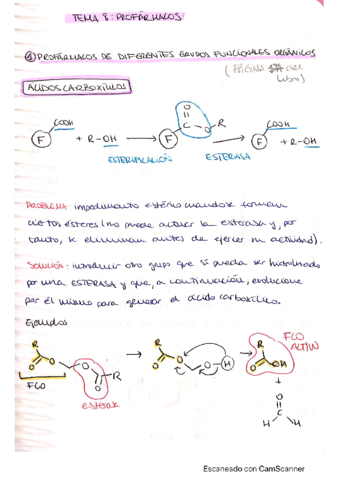 TEMA 8: PROFÁRMACOS
① PROFÁRMACOS DE DIFERENTES GRUPOS FUNCIONALES ORGÁNICOS
(PÁGINA del libro)
ÁCIDOS CARBOXÍLICOS
F COOH + R-OH → F C O O R → F COOH + R-OH
ESTERIFICACIÓN ESTERASA
PROBLEMA: impedimento estérico cuando se forman
ciertos ésteres (no puede actuar la esterasa y, por
tanto, se eliminan antes de ejercer su actividad).
SOLUCIÓN: introducir otro grupo que sí pueda ser hidrolizado
por una ESTERASA y que, a continuación, evolucione
por él mismo para generar el ácido carboxílico.
Ejemplos
R O O O O R → R O O O H → R O OH
FCO
ACTIVO
FCO
esterasa
+
O
C
H H
Escaneado con CamScanner